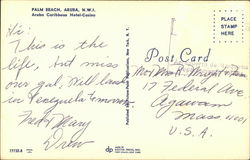 PALM BEACH, ARUBA, N.W.I.
Aruba Caribbean Hotel-Casino
PLACE
STAMP
HERE
Hi:
This is the
life, but miss
our gal. Will land
in Venezuela tomorrow
Fred & Mary
Drew
Post Card
Mr & Mrs R.
17 Federal Ave
Agawam
Mass 01001
U.S.A.